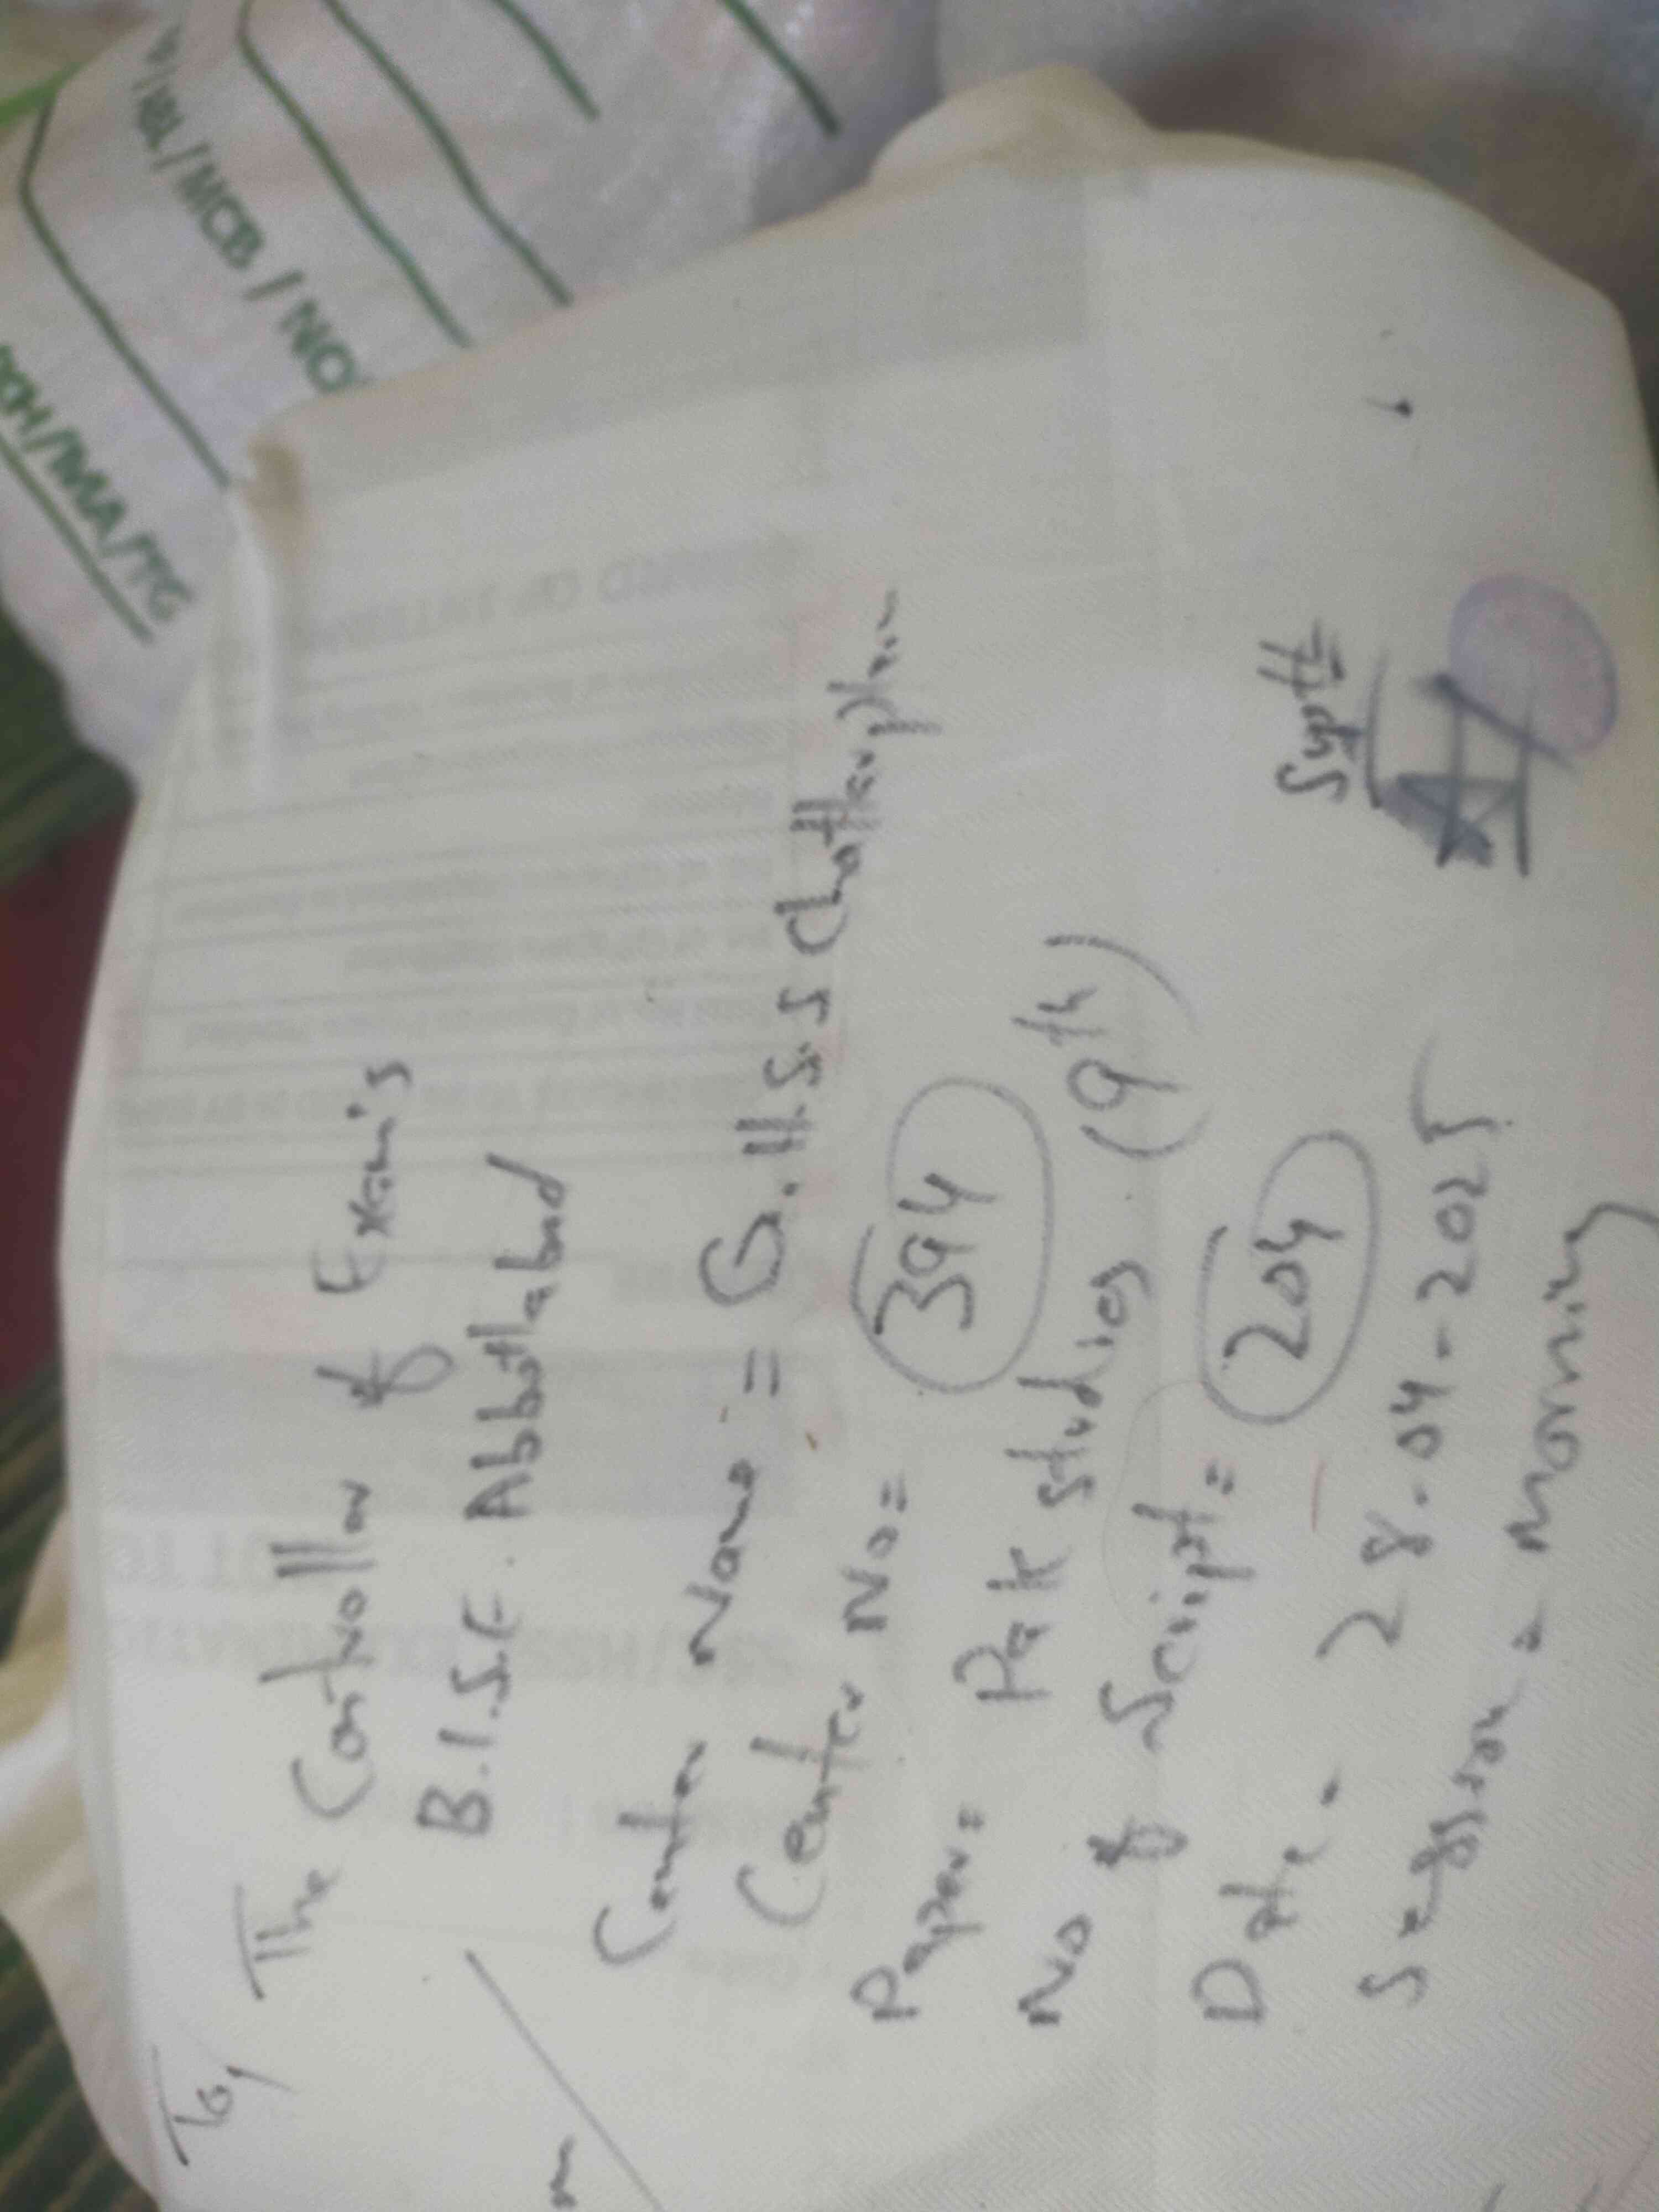 To,
The Controller of Exam's
B.I.S.E. Abbottabad
Center Name = G.H.S.S Chattarplain
Center No = 394
Paper = Pak studies (9th)
No of Script = 204
Date = 28-04-2025
Session = morning
Suptt
/MCB / NO
/IMA/TG